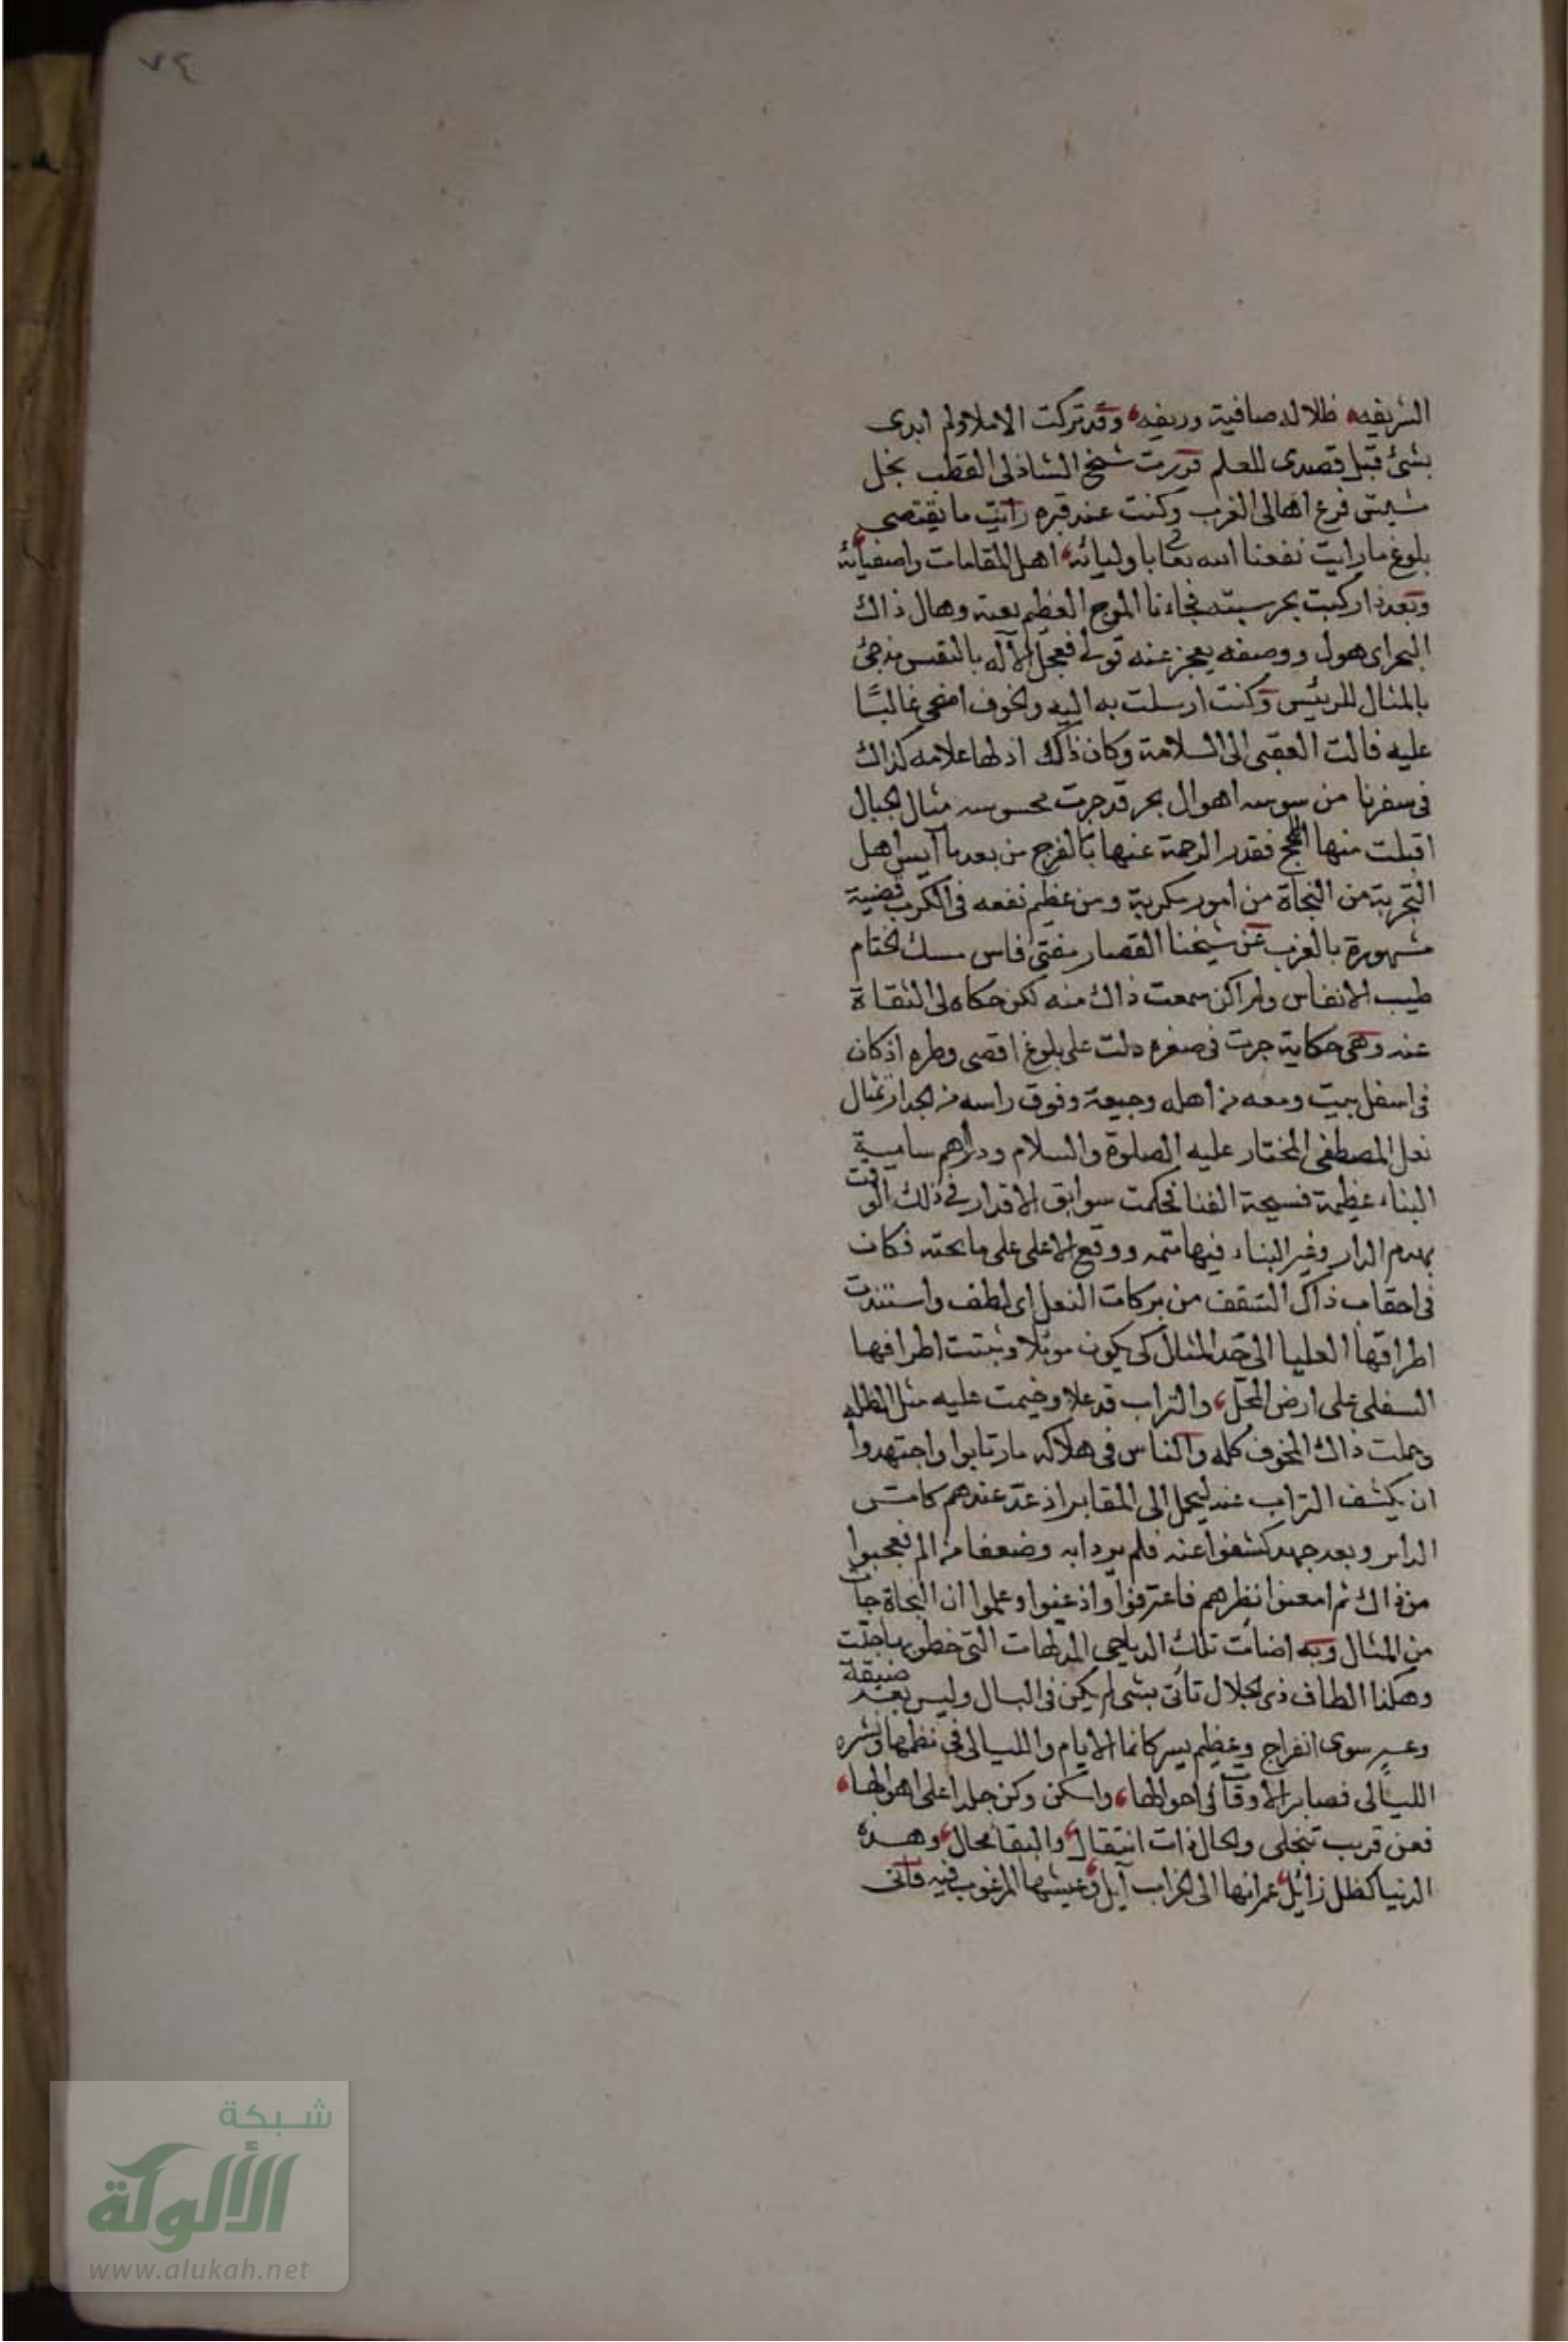 ٧٤
الشريفه ظلاله صافية وريفه وقد تركت الاملا ولم ابدى
بشئ قبل قصدى للعلم فزرت شيخ الشاذلى القطب نجل
مشيش فرع اهالى الغرب وكنت عند قبره رايت ما يقتضى
بلوغ ما رايت نفعنا الله تعا باوليائه اهل المقامات واصفيائه
وبعد ذا ركبت بحر سبته فجاءنا الموج العظيم بغته وهال ذاك
البحر اى هول ووصفه يعجز عنه قولى فعجل الاله بالنفيس مذ جئ
بالمثال للرئيس وكنت ارسلت به اليه والخوف اضحى غالبًا
عليه فالت العقبى الى السلامة وكان ذاك اذ لها علامه كذاك
فى سفرنا من سوسه اهوال بحر قد جرت محسوسه مثال الجبال
اقبلت منها اللجج فقدر الرحمة عنها بالفرج من بعد ما آيس اهل
التجربة من النجاة من امور مكربة ومن عظيم نفعه فى الكرب قضية
مشهورة بالغرب عن شيخنا القصار مفتى فاس مسك الختام
طيب الانفاس ولم اكن سمعت ذاك منه لكن حكاه لى الثقاة
عنه وهى حكاية جرت فى صغره دلت على بلوغ اقصى وطره اذ كان
فى اسفل بيت ومعه من اهله وجيعة وفوق راسه من الجدار تمثال
نعل المصطفى المختار عليه الصلوة والسلام ودارهم سامية
البناء عظيمة فسيحة الفنا فحكمت سوابق الاقدار فى ذلك الوقت
بهدم الدار وغير البناء فيها متمه ووقع الاعلى على ما تحته فكان
فى احقاب ذاك السقف من بركات النعل اى لطف واستندت
اطرافها العليا الى حد المثال كى يكون موئلا وثبتت اطرافها
السفلى على ارض المحل والتراب قد علا وخيمت عليه مثل المظله
وحملت ذاك المخوف كله والناس فى هلاكه ما رتابوا واجتهدوا
ان يكشف التراب عنه ليحمل الى المقابر اذ عد عندهم كامس
الدابر وبعد جهد كشفوا عنه فلم يرد ابه وضعفا من الم فعجبوا
من ذاك ثم امعنوا نظرهم فاعترفوا واذعنوا وعلموا ان النجاة جات
من المثال وبه اضأت تلك الدياجى المدلهمات التى خطوبها جلت
وهكذا الطاف ذى الجلال تأتى بشى لم يكن فى البال وليس بعد ضيقة
وعسر سوى انفراج وعظيم يسر كانما الايام والليالى فى نظمها ونشره
الليالى فصابر الاوقات فى احوالها واسكن وكن جلدا على اهوالها
فعن قريب تنجلى والحال ذات انتقال والبقا محال وهذه
الدنيا كظل زائل عمرانها الى الخراب آيل وعيشها المرغوب فيه فانى
شبكة
الألوكة
www.alukah.net